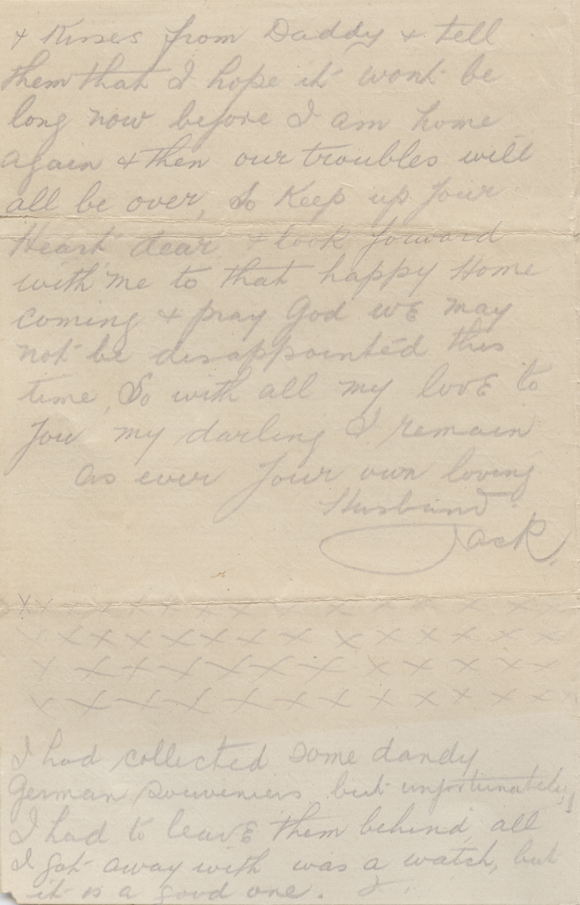 & Kisses from Daddy & tell
them that I hope it wont be
long now before I am home
again & then our troubles will
all be over, So Keep up your
Heart dear & look foward
with me to that happy Home
coming & pray God we may
not be disappointed this
time, So with all my love to
you my darling I remain
as ever your own loving
Husband
Jack.
x x x x x x x x x x x x x x
x x x x x x x x x x x x x x
x x x x x x x x x x x x x x
x x x x x x x x x x x x x x
I had collected some dandy
German souveniers but unfortunately,
I had to leave them behind, all
I got away with was a watch, but
it is a good one. J.